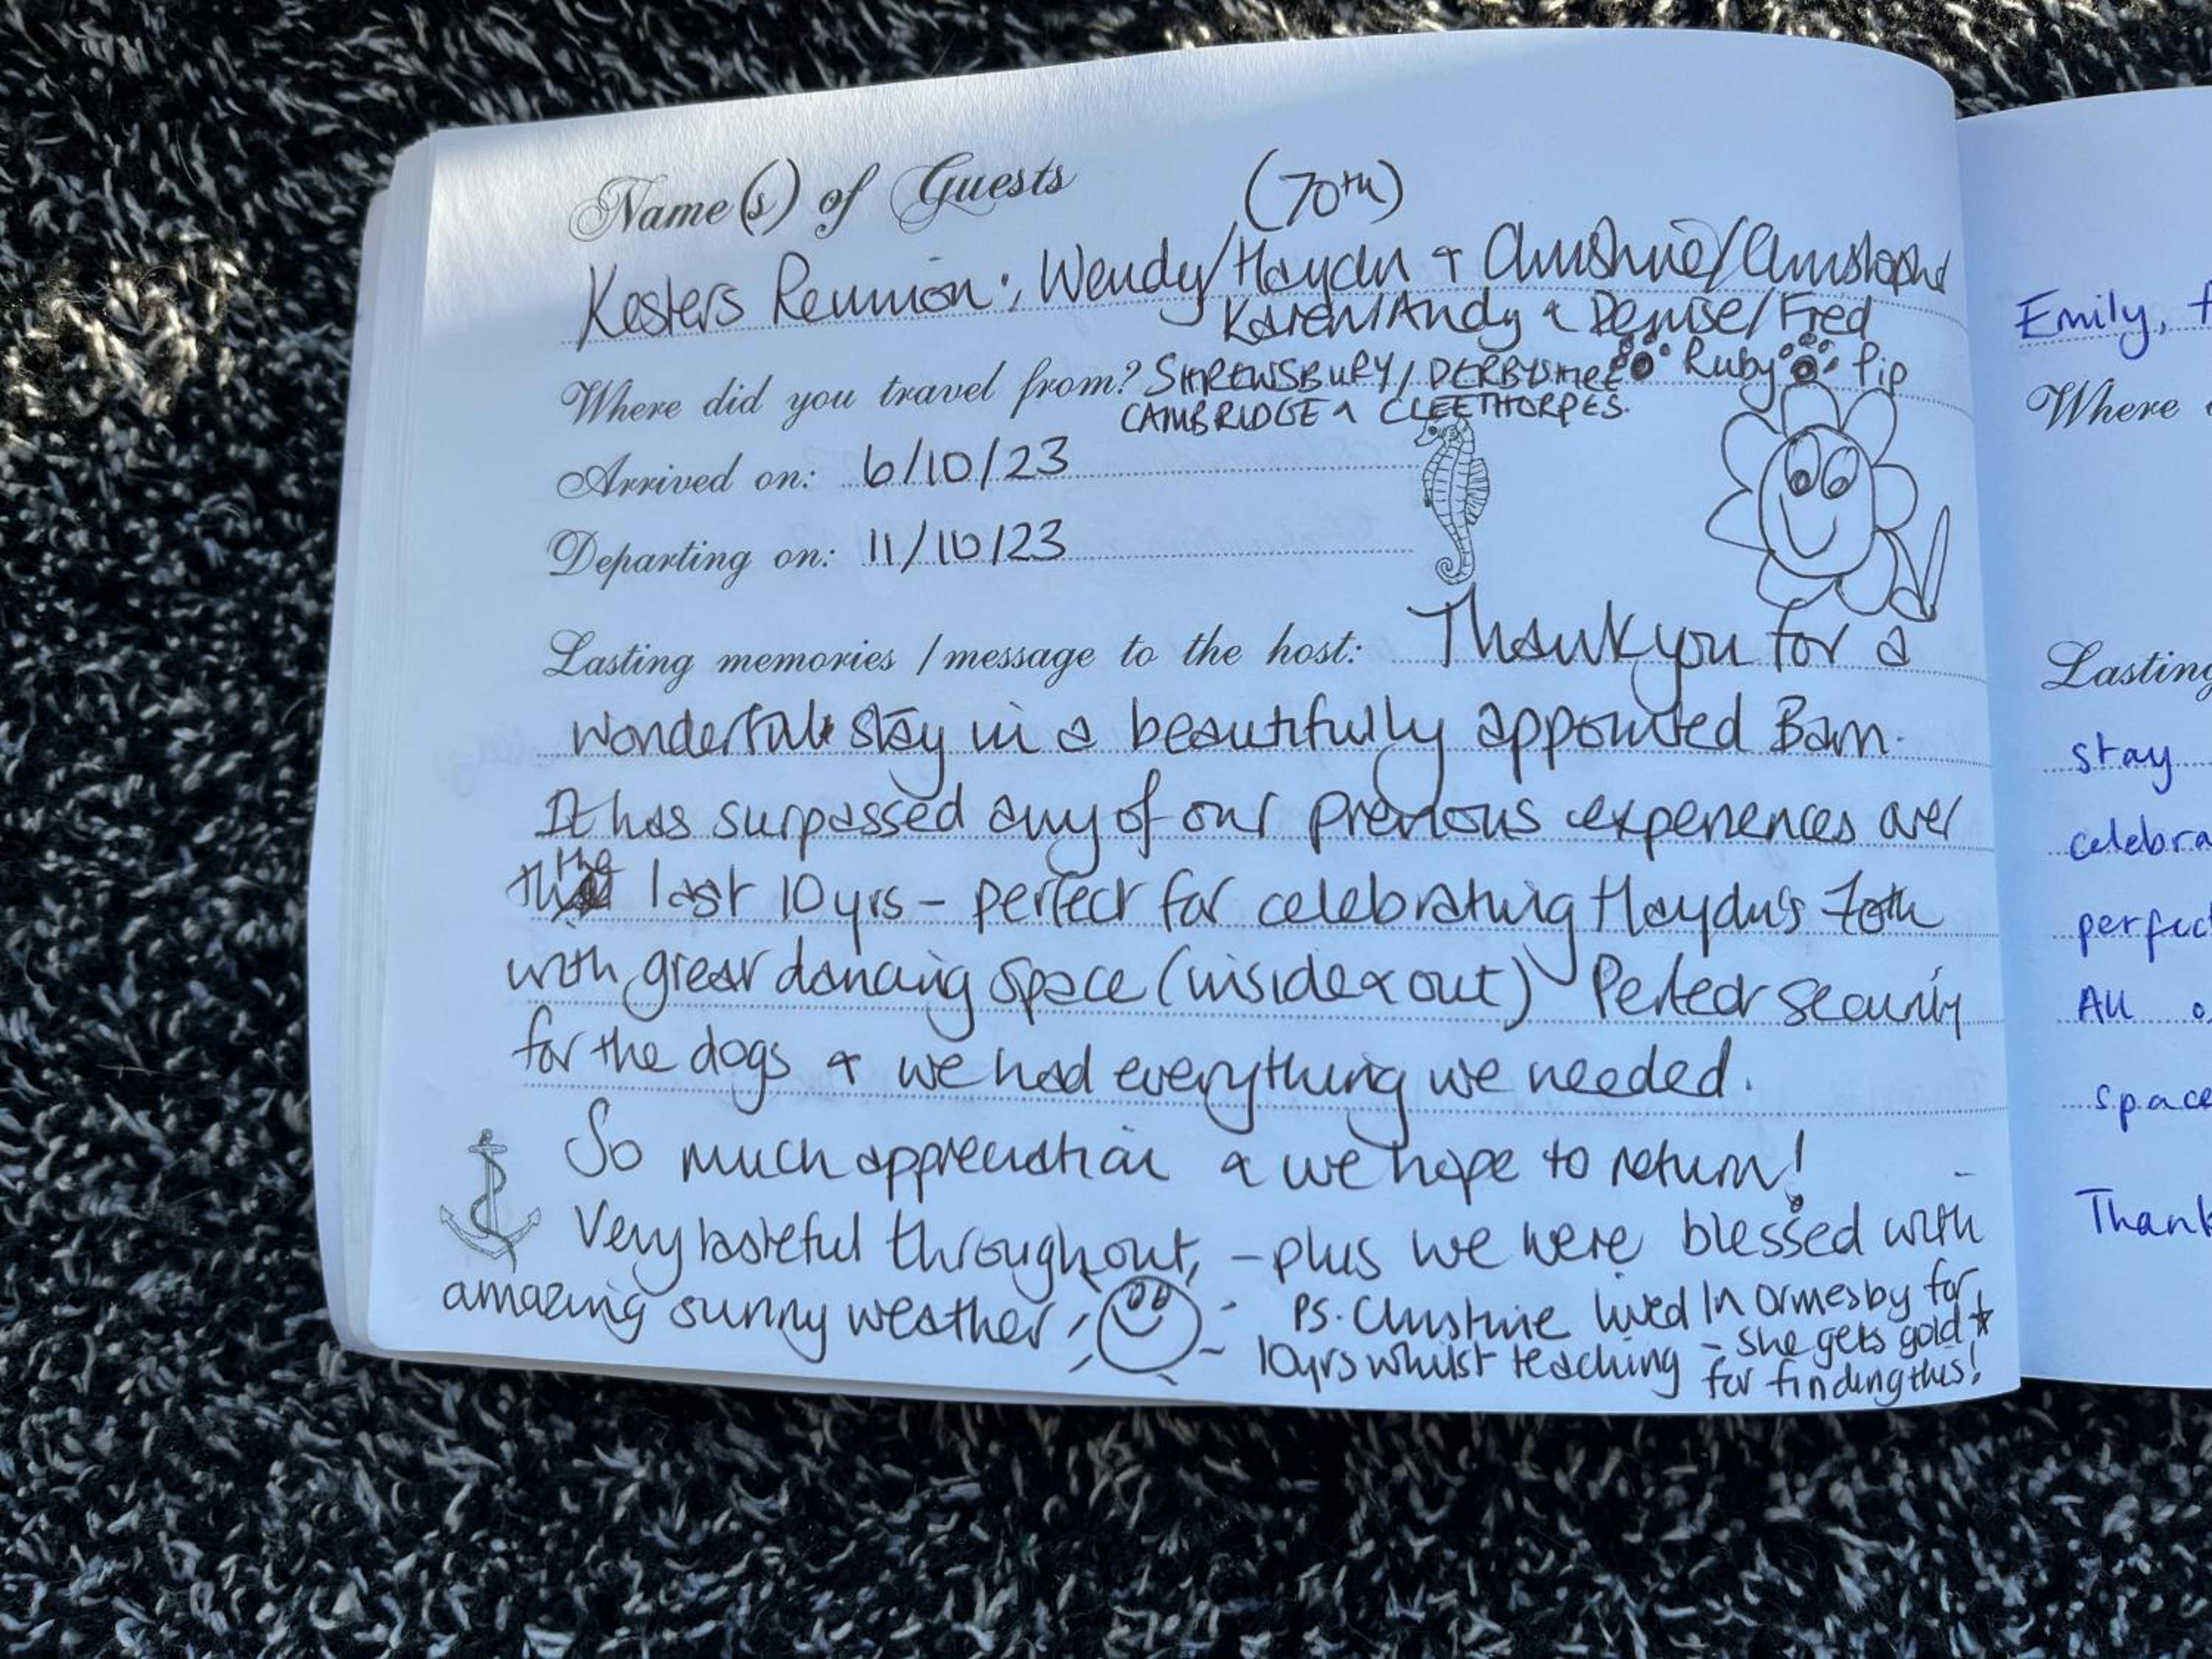 Name(s) of Guests
(70th)
Kesters Reunion: Wendy/Haydn & Christine/Christophe
Karen/Andy & Denise/Fred
Where did you travel from? SHREWSBURY/DERBYSHIRE Ruby Pip
CAMBRIDGE & CLEETHORPES.
Arrived on: 6/10/23
Departing on: 11/10/23
Lasting memories / message to the host: Thank you for a
wonderful stay in a beautifully appointed Barn.
It has surpassed any of our previous experiences over
the last 10yrs - perfect for celebrating Haydn's 70th
with great dancing space (inside & out) Perfect security
for the dogs & we had everything we needed.
So much appreciation & we hope to return!
Very tasteful throughout, - plus we were blessed with
amazing sunny weather
PS. Christine lived In Ormesby for
10yrs whilst teaching - she gets gold ★
for finding this!
Emily,
Where
Lasting
stay
celebra
perfec
All
space
Thank